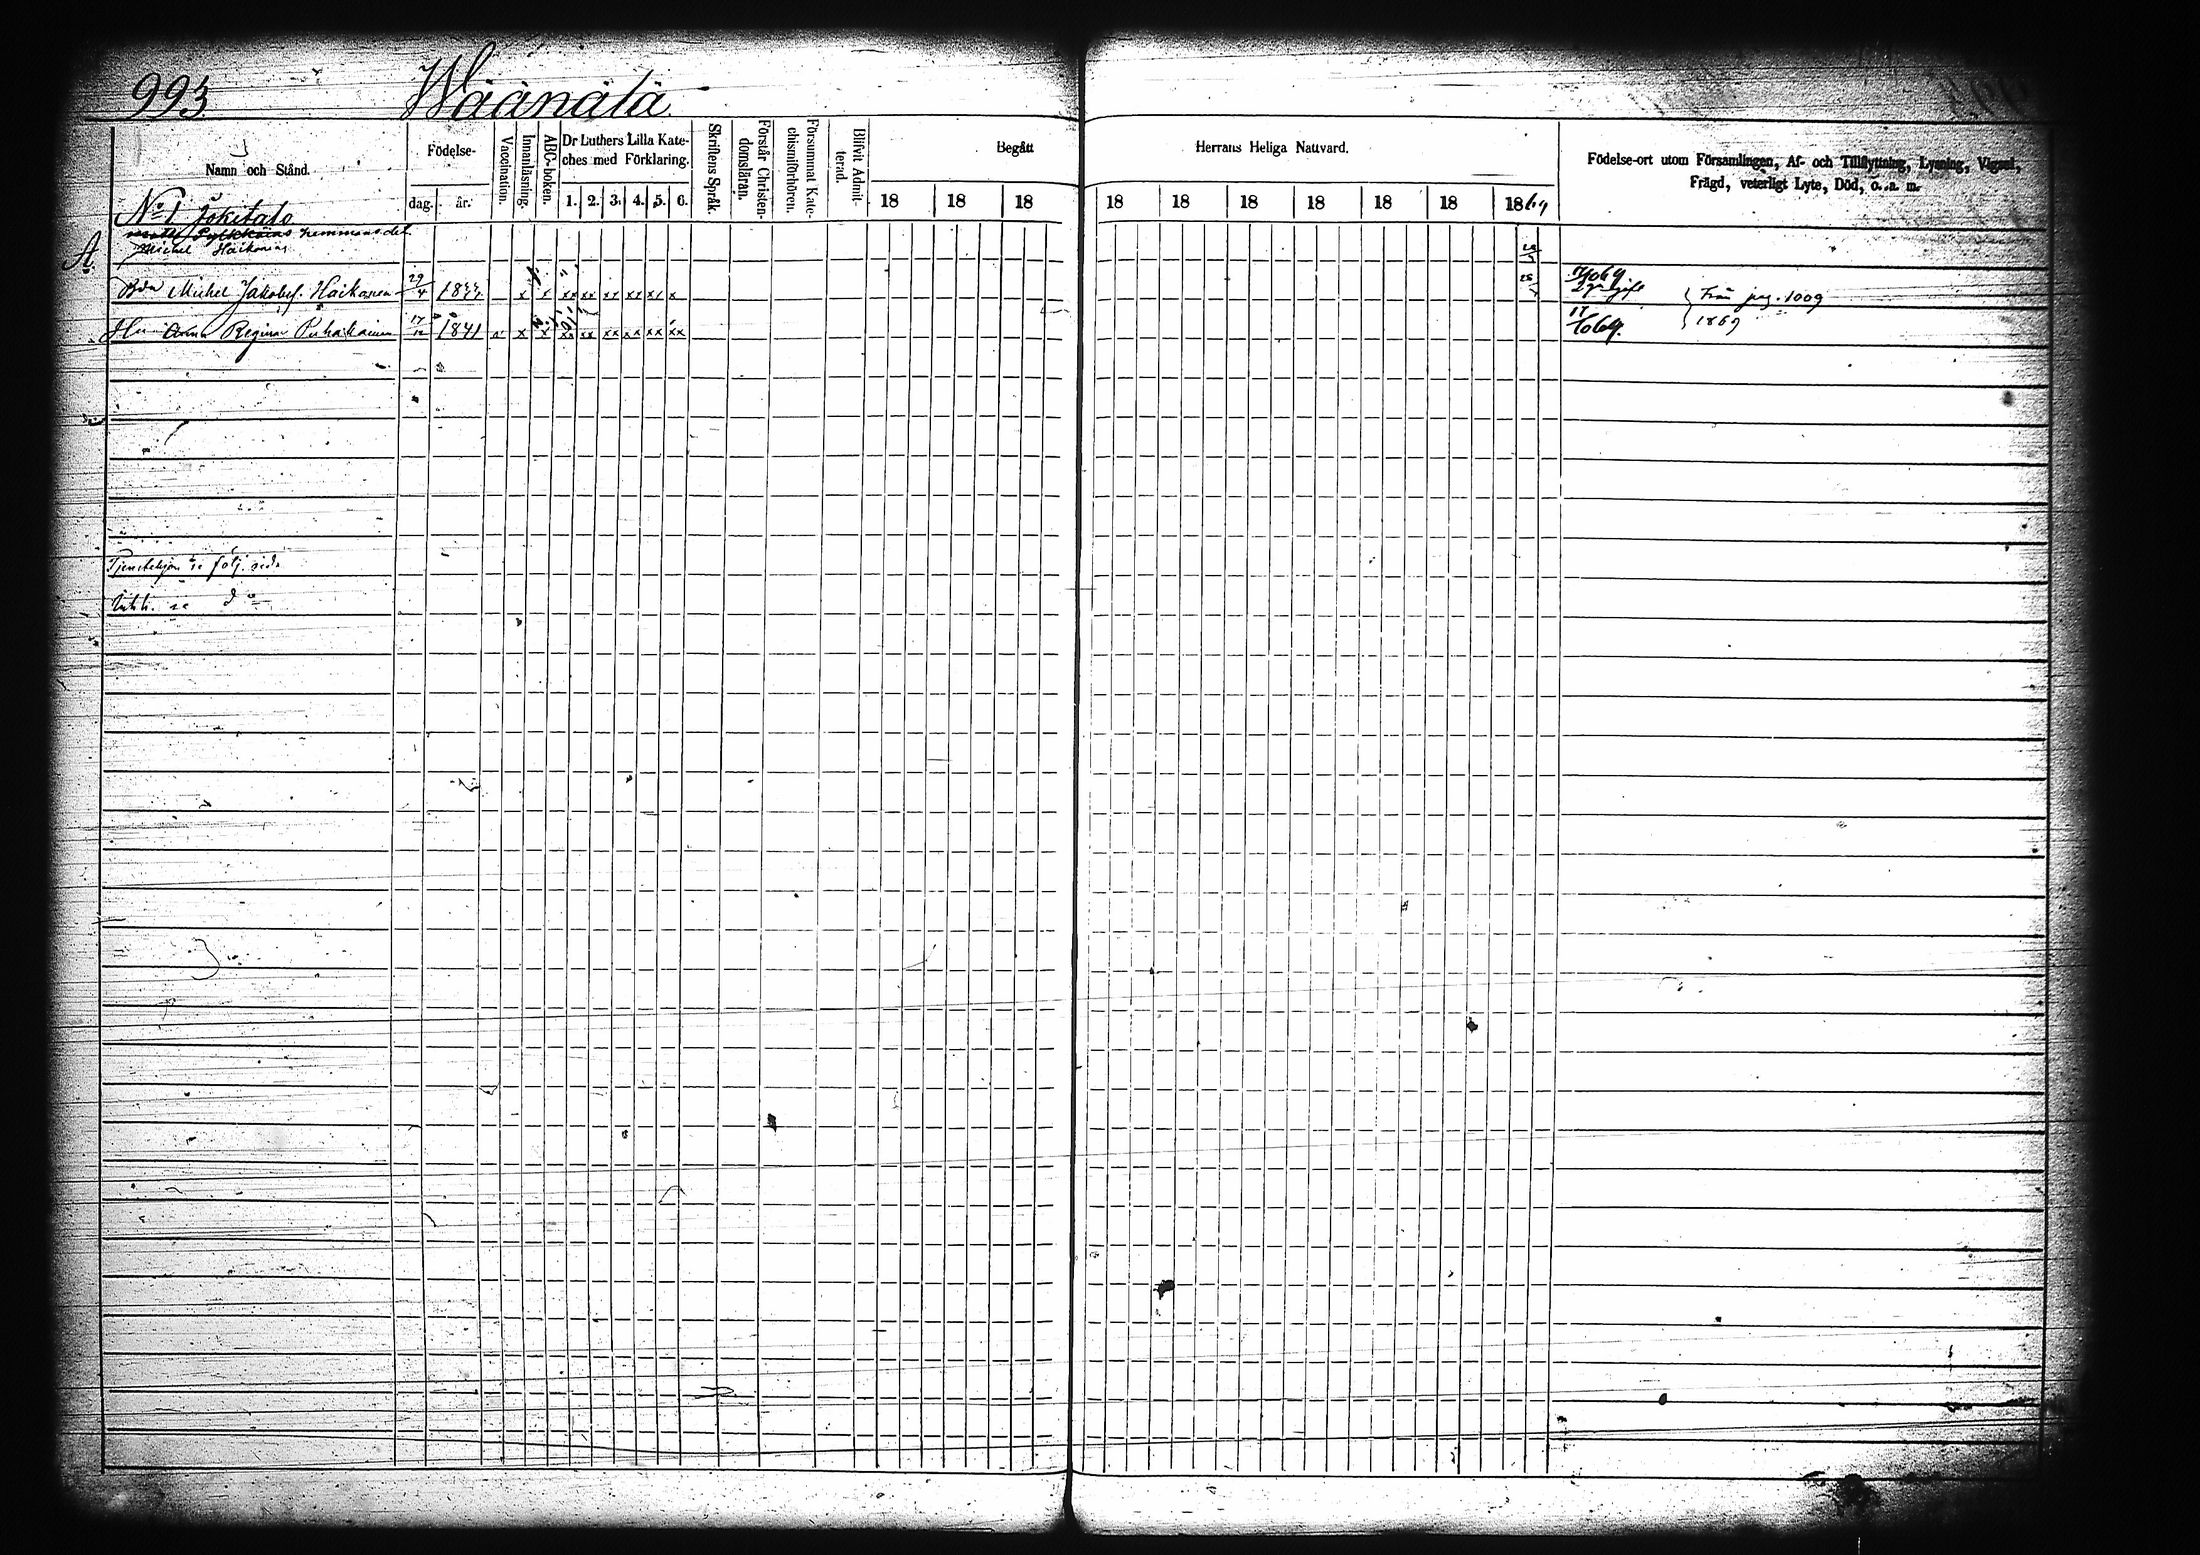 993 Wäänälä
Namn och Stånd.
Födelse-
dag. år.
Vaccination.
Innanläsning.
ABC-boken.
Dr Luthers Lilla Kate-
ches med Förklaring.
1. 2. 3. 4. 5. 6.
Skriftens Språk.
Förstår Christen-
domsläran.
Försummat Kate-
chismiförhören.
Blifvit Admit-
terad.
Begått Herrans Heliga Nattvard.
18 18 18 18 18 18 18 18 18 1869
Födelse-ort utom Församlingen, Af- och Tillflyttning, Lysning, Vigsel,
Frägd, veterligt Lyte, Död, o. a. m.
No 1 Jokitalo
hemmansdel
A Michel Häikönens
Bdn Michel Jakobss. Häikönen 29/4 18 x x xx xx xx xx xx x
2 gift
Från pag. 1009
Hu Anna Regina Puhakainen 17/12 1841 x x xx xx xx xx xx xx
1869
Tjenstehjon se följ. sida
Inh. se do